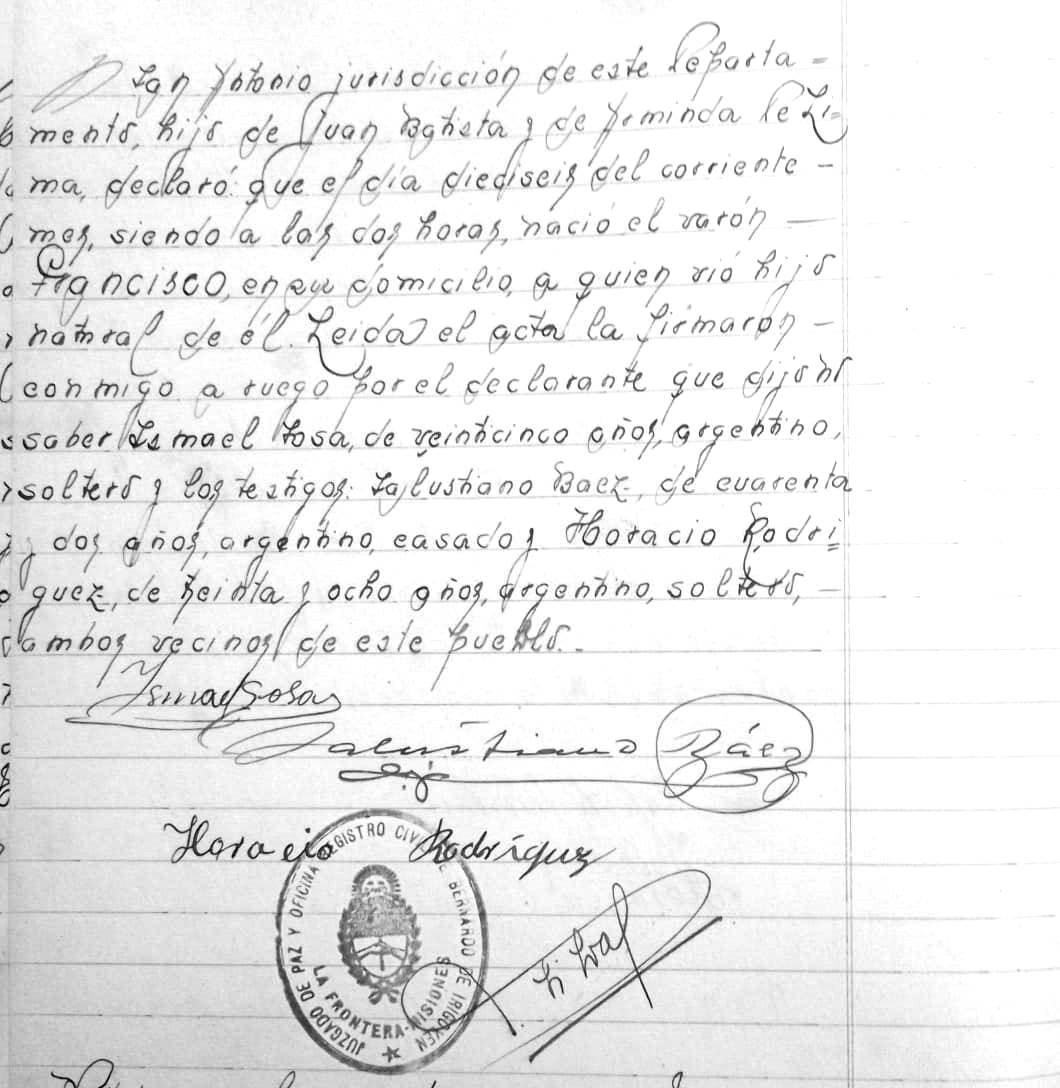 San Antonio jurisdicción de este Departa=
mento, hijo de Juan Batista y de Erminda de Li=
ma, declaró: que el día dieciseis del corriente —
mes, siendo a las dos horas, nació el varón —
Francisco, en su domicilio, a quien vió hijo
natural de él. Leida el acta la firmaron —
conmigo a ruego por el declarante que dijo no
saber Ismael Sosa, de veinticinco años, argentino,
soltero y los testigos: Salustiano Baez, de cuarenta
y dos años, argentino, casado y Horacio Rodri=
guez, de treinta y ocho años, argentino, soltero, —
ambos vecinos de este pueblo.-
Ismael Sosa
Salustiano Báez
Horacio Rodríguez
JUZGADO DE PAZ Y OFICINA REGISTRO CIVIL DE BERNARDO DE IRIGOYEN
LA FRONTERA-MISIONES